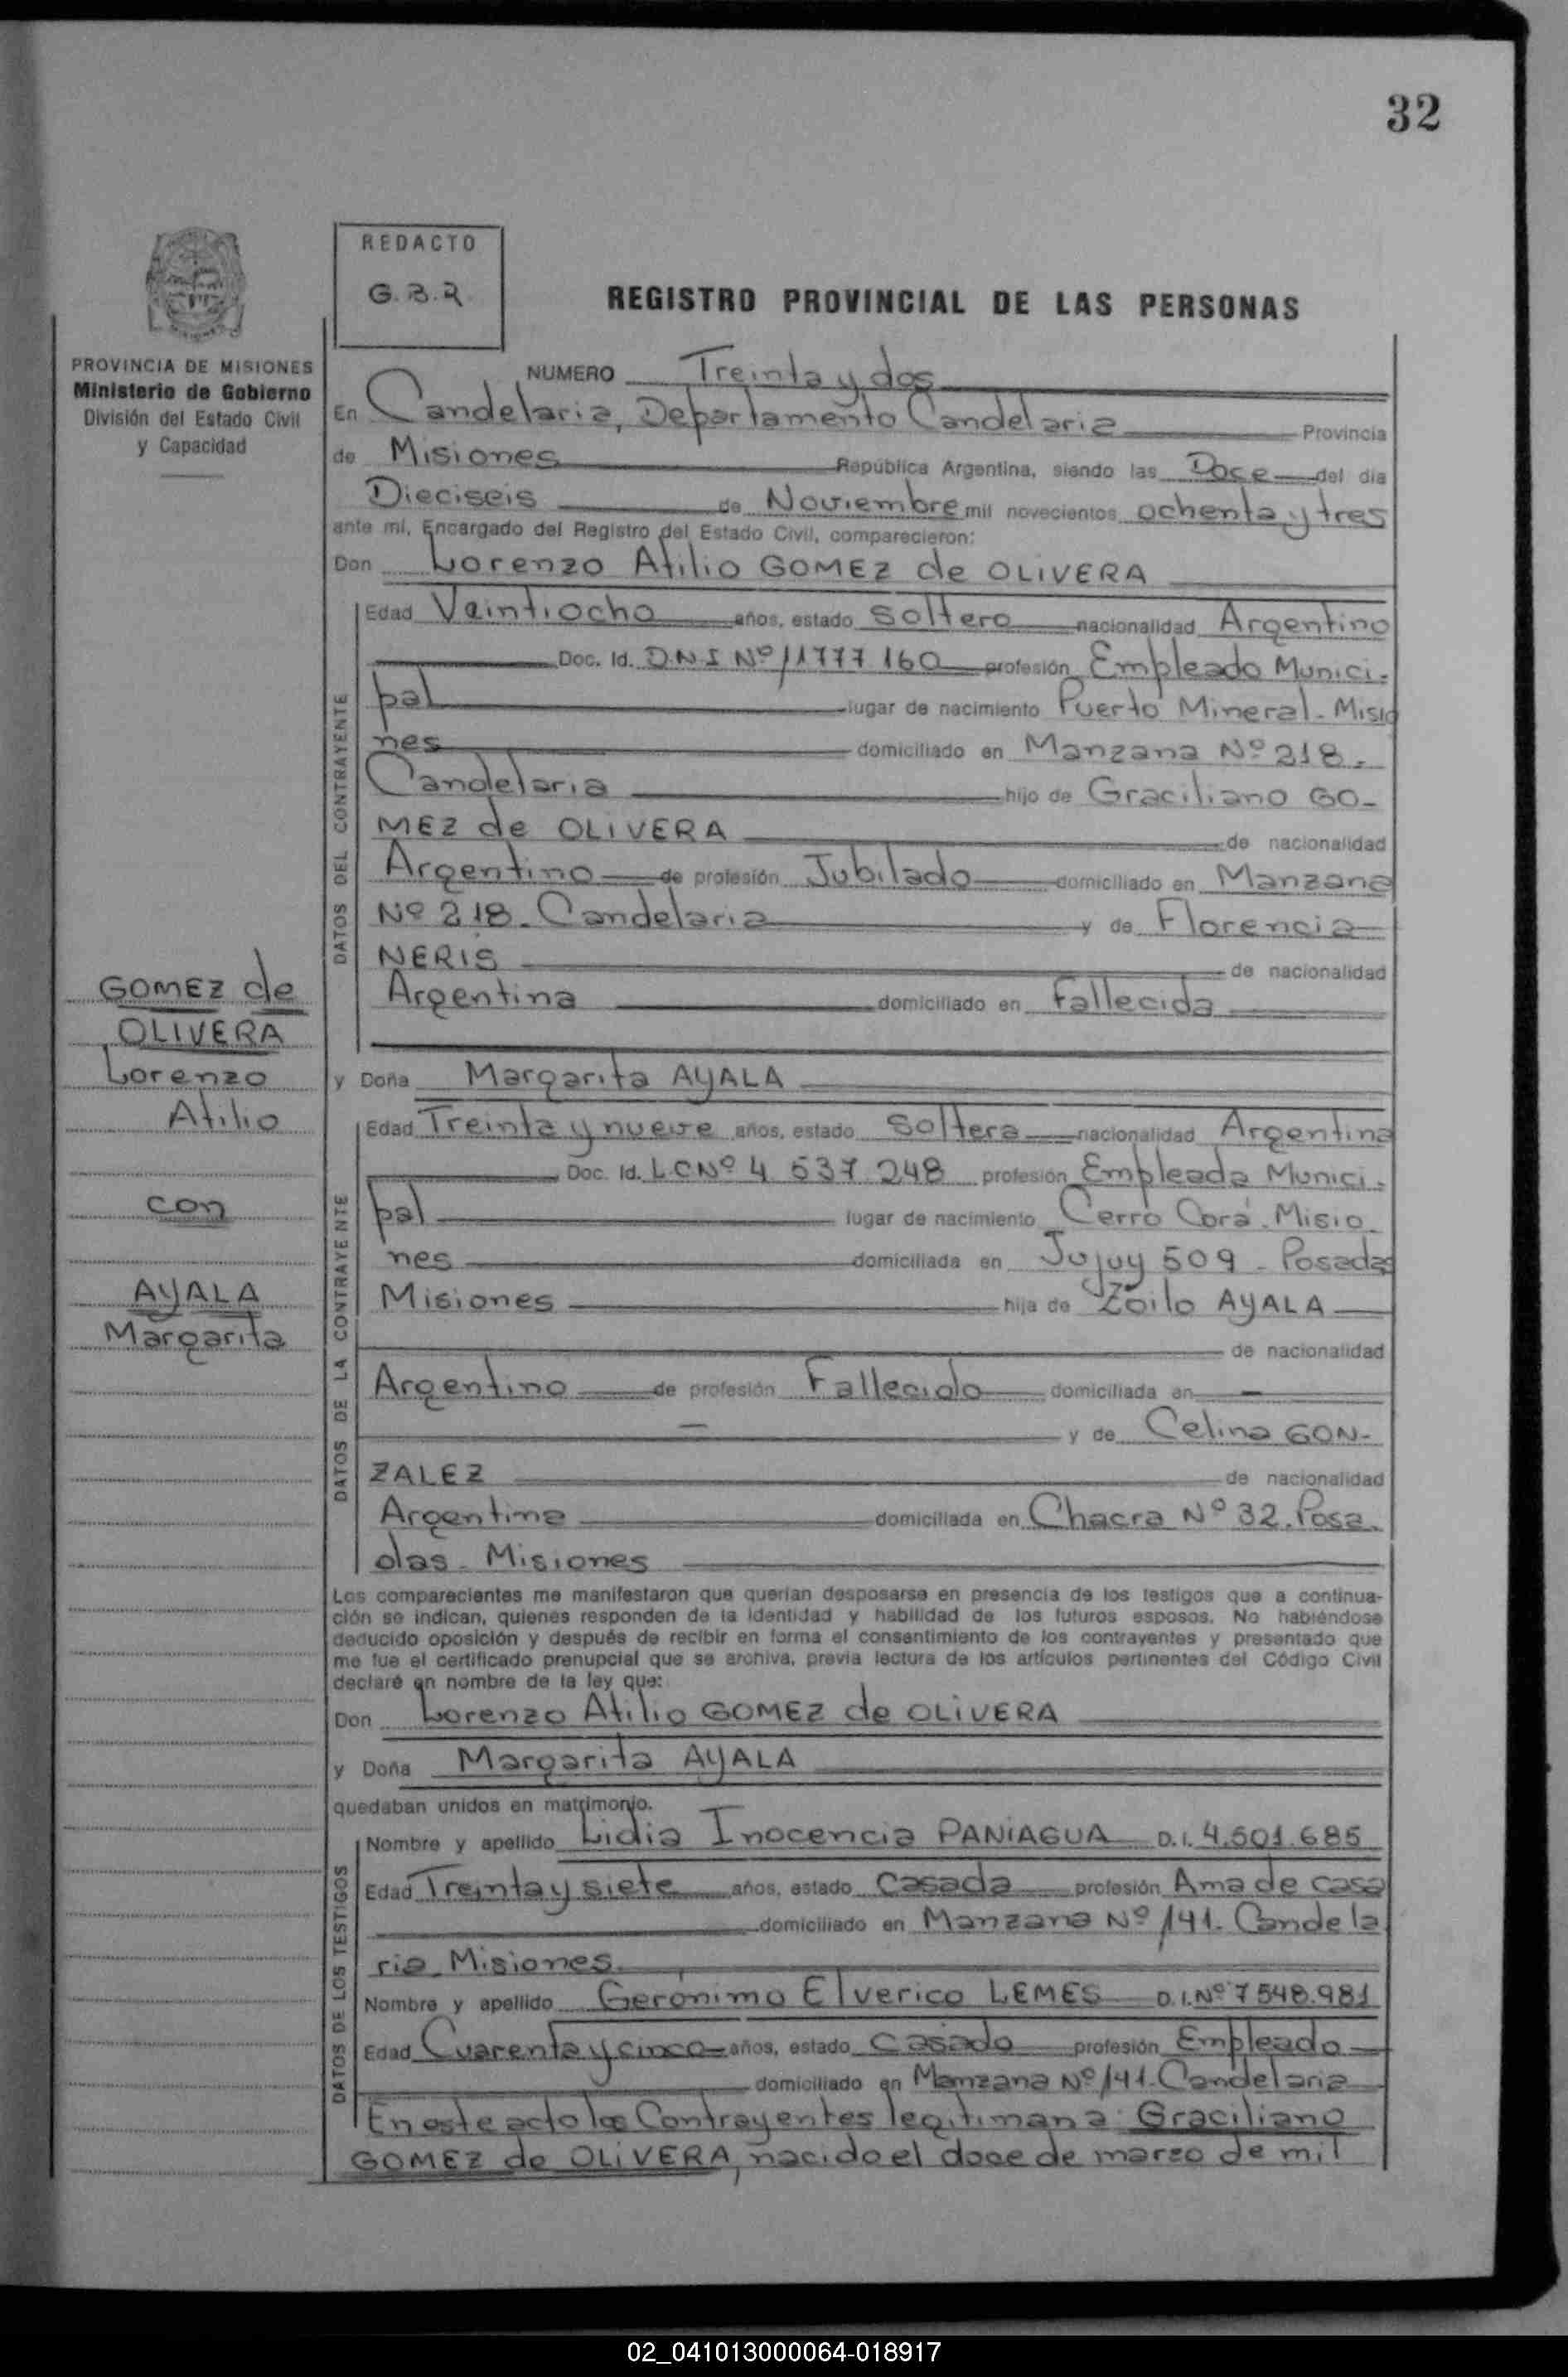 32
REDACTO
G.B.R.
REGISTRO PROVINCIAL DE LAS PERSONAS
PROVINCIA DE MISIONES
Ministerio de Gobierno
División del Estado Civil
y Capacidad
NUMERO Treinta y dos
En Candelaria, Departamento Candelaria Provincia
de Misiones República Argentina, siendo las Doce del día
Dieciseis de Noviembre mil novecientos ochenta y tres
ante mí, Encargado del Registro del Estado Civil, comparecieron:
Don Lorenzo Atilio GOMEZ de OLIVERA
DATOS DEL CONTRAYENTE
Edad Veintiocho años, estado Soltero nacionalidad Argentino
Doc. Id. D.N.I Nº 11777160 profesión Empleado Munici-
pal lugar de nacimiento Puerto Mineral - Misio
nes domiciliado en Manzana Nº 218.
Candelaria hijo de Graciliano GO-
MEZ de OLIVERA de nacionalidad
Argentino de profesión Jubilado domiciliado en Manzana
Nº 218 - Candelaria y de Florencia
NERIS de nacionalidad
Argentina domiciliado en Fallecida
GOMEZ de
OLIVERA
Lorenzo
Atilio
con
AYALA
Margarita
y Doña Margarita AYALA
DATOS DE LA CONTRAYENTE
Edad Treinta y nueve años, estado Soltera nacionalidad Argentina
Doc. Id. LC Nº 4 537 248 profesión Empleada Munici-
pal lugar de nacimiento Cerro Corá - Misio
nes domiciliada en Jujuy 509 - Posadas
Misiones hija de Zoilo AYALA
de nacionalidad
Argentino de profesión Fallecido domiciliada en -
- y de Celina GON-
ZALEZ de nacionalidad
Argentina domiciliada en Chacra Nº 32. Posa.
das - Misiones
Los comparecientes me manifestaron que querían desposarse en presencia de los testigos que a continua-
ción se indican, quienes responden de la identidad y habilidad de los futuros esposos. No habiéndose
deducido oposición y después de recibir en forma el consentimiento de los contrayentes y presentado que
me fue el certificado prenupcial que se archiva, previa lectura de los artículos pertinentes del Código Civil
declaré en nombre de la ley que:
Don Lorenzo Atilio GOMEZ de OLIVERA
y Doña Margarita AYALA
quedaban unidos en matrimonio.
DATOS DE LOS TESTIGOS
Nombre y apellido Lidia Inocencia PANIAGUA D.I. 4.501.685
Edad Treinta y siete años, estado Casada profesión Ama de casa
domiciliado en Manzana Nº 141. Candela
ria Misiones
Nombre y apellido Gerónimo Elverico LEMES D.I.Nº 7548.981
Edad Cuarenta y cinco años, estado Casado profesión Empleado
domiciliado en Manzana Nº 141 - Candelaria
En este acto los Contrayentes legitiman a: Graciliano
GOMEZ de OLIVERA, nacido el doce de marzo de mil
02_041013000064-018917